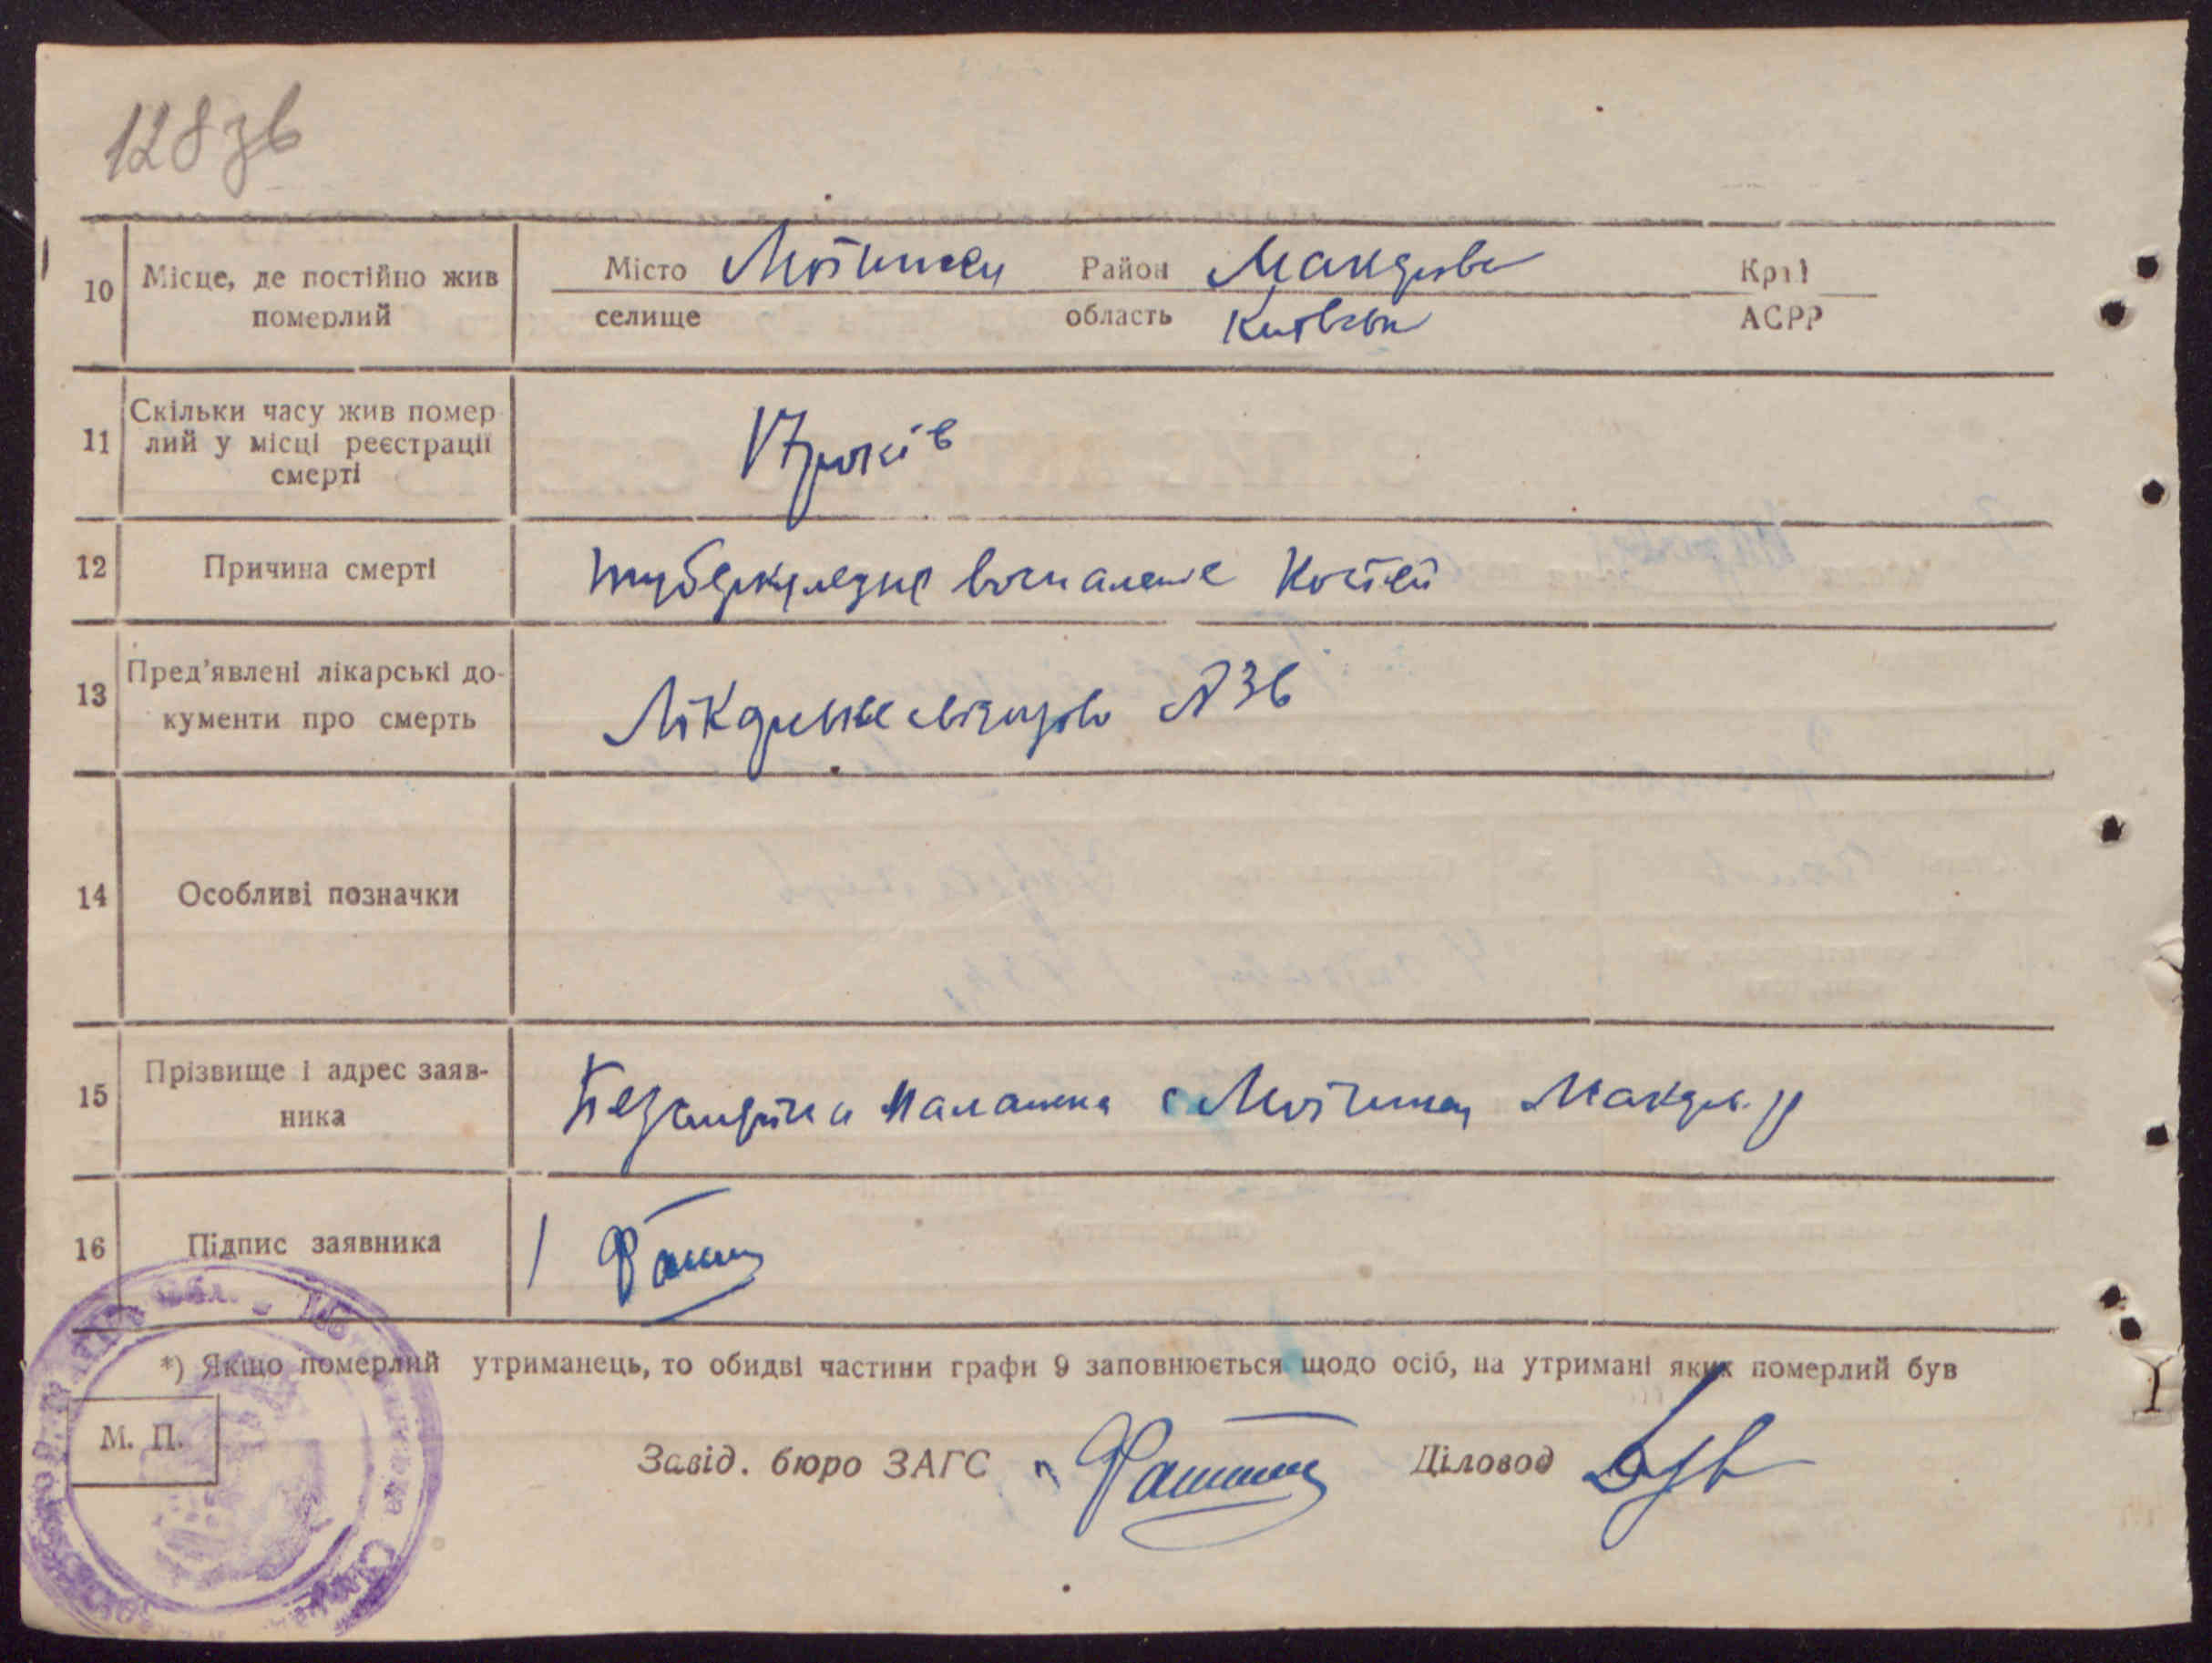 128 зв
10 Місце, де постійно жив померлий
Місто Мотижин Район Макарів Край
селище область Київськ АСРР
11 Скільки часу жив помер
лий у місці реєстрації
смерті
17 років
12 Причина смерті туберкулезне воспаление Костей
13 Пред'явлені лікарські до-
кументи про смерть
Лікарське свідоцтво № 36
14 Особливі позначки
15 Прізвище і адрес заяв-
ника
Маланка с Мотижин Макар. р
16 Підпис заявника
*) Якщо померлий утриманець, то обидві частини графи 9 заповнюється щодо осіб, на утримані яких померлий був
М. П.
Завід. бюро ЗАГС Діловод